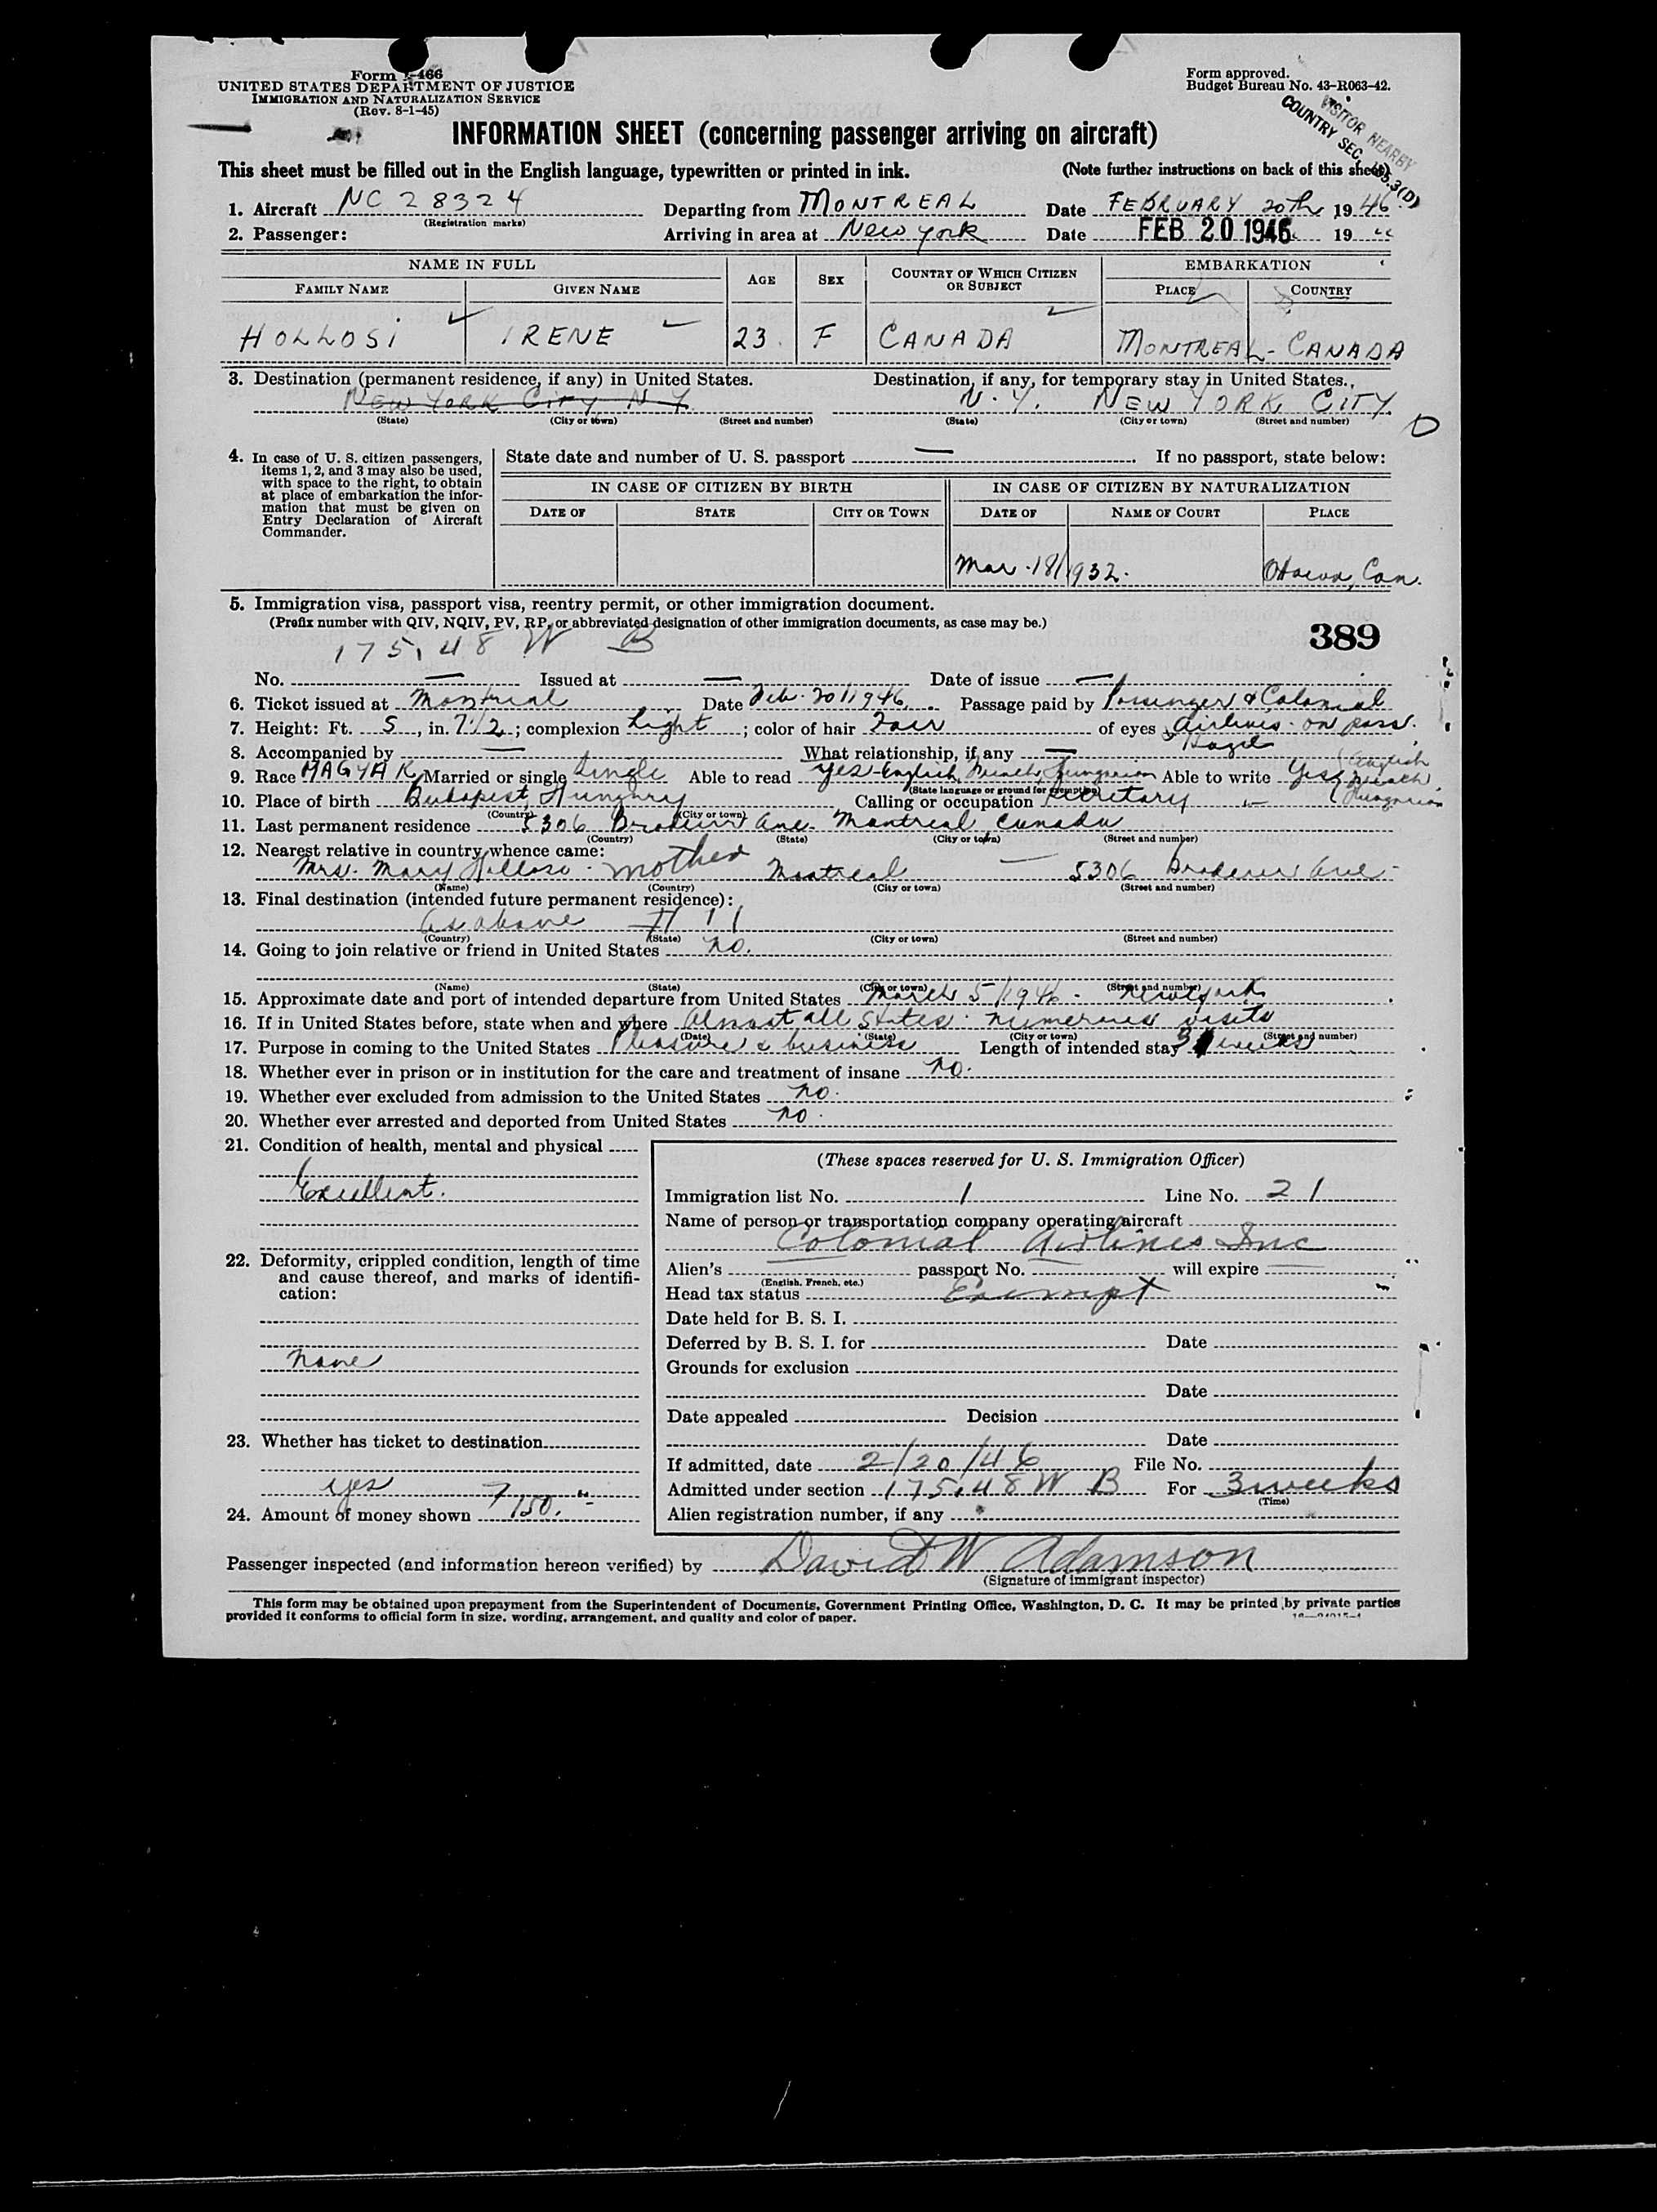 Form I-466
UNITED STATES DEPARTMENT OF JUSTICE
IMMIGRATION AND NATURALIZATION SERVICE
(Rev. 8-1-45)
Form approved.
Budget Bureau No. 43-R063-42.
VISITOR NEARBY
COUNTRY SEC. 175.3(D)
INFORMATION SHEET (concerning passenger arriving on aircraft)
This sheet must be filled out in the English language, typewritten or printed in ink. (Note further instructions on back of this sheet)
1. Aircraft NC 28324 Departing from MONTREAL Date FEBRUARY 20th 1946
(Registration marks)
2. Passenger: Arriving in area at New York Date FEB 20 1946 19 "
NAME IN FULL AGE SEX COUNTRY OF WHICH CITIZEN OR SUBJECT EMBARKATION
FAMILY NAME GIVEN NAME PLACE COUNTRY
HOLLOSI IRENE 23 F CANADA MONTREAL - CANADA
3. Destination (permanent residence, if any) in United States. Destination, if any, for temporary stay in United States.
NEW YORK CITY N Y N. Y. NEW YORK CITY
(State) (City or town) (Street and number) (State) (City or town) (Street and number)
D
4. In case of U. S. citizen passengers, items 1, 2, and 3 may also be used, with space to the right, to obtain at place of embarkation the information that must be given on Entry Declaration of Aircraft Commander.
State date and number of U. S. passport — If no passport, state below:
IN CASE OF CITIZEN BY BIRTH IN CASE OF CITIZEN BY NATURALIZATION
DATE OF STATE CITY OR TOWN DATE OF NAME OF COURT PLACE
Mar. 18/1932. Ottawa, Can.
5. Immigration visa, passport visa, reentry permit, or other immigration document.
(Prefix number with QIV, NQIV, PV, RP, or abbreviated designation of other immigration documents, as case may be.)
389
175.48 W B
No. — Issued at — Date of issue —
6. Ticket issued at Montreal Date Feb. 20/1946. Passage paid by Passenger & Colonial
7. Height: Ft. 5, in. 7 1/2; complexion Light; color of hair Fair of eyes Airlines on pass.
Hazel
8. Accompanied by — What relationship, if any —
9. Race MAGYAR Married or single Single Able to read Yes-English, French, Hungarian Able to write Yes (English French Hungarian
(State language or ground for exemption)
10. Place of birth Budapest, Hungary Calling or occupation Secretary
(Country) (City or town)
11. Last permanent residence 5306 Ave. Montreal Canada
(Country) (State) (City or town) (Street and number)
12. Nearest relative in country whence came:
Mrs. Mary Hollosi - mother Montreal — 5306 Ave -
(Name) (Country) (City or town) (Street and number)
13. Final destination (intended future permanent residence):
as above # 11
(Country) (State) (City or town) (Street and number)
14. Going to join relative or friend in United States no.
(Name) (State) (City or town) (Street and number)
15. Approximate date and port of intended departure from United States March 5/1946 - New York
16. If in United States before, state when and where Almost all States - numerous visits
(Date) (State) (City or town) (Street and number)
17. Purpose in coming to the United States Pleasure & business Length of intended stay 3 weeks
18. Whether ever in prison or in institution for the care and treatment of insane no.
19. Whether ever excluded from admission to the United States no.
20. Whether ever arrested and deported from United States no.
21. Condition of health, mental and physical
Excellent.
22. Deformity, crippled condition, length of time and cause thereof, and marks of identification:
None
23. Whether has ticket to destination
yes
24. Amount of money shown 150.-
(These spaces reserved for U. S. Immigration Officer)
Immigration list No. 1 Line No. 21
Name of person or transportation company operating aircraft
Colonial Airlines Inc
Alien's passport No. will expire
(English, French, etc.)
Head tax status Exempt
Date held for B. S. I.
Deferred by B. S. I. for Date
Grounds for exclusion
Date
Date appealed Decision
Date
If admitted, date 2/20/46 File No.
Admitted under section 175.48 W B For 3 weeks
(Time)
Alien registration number, if any
Passenger inspected (and information hereon verified) by David W Adamson
(Signature of immigrant inspector)
This form may be obtained upon prepayment from the Superintendent of Documents, Government Printing Office, Washington, D. C. It may be printed by private parties
provided it conforms to official form in size, wording, arrangement, and quality and color of paper.